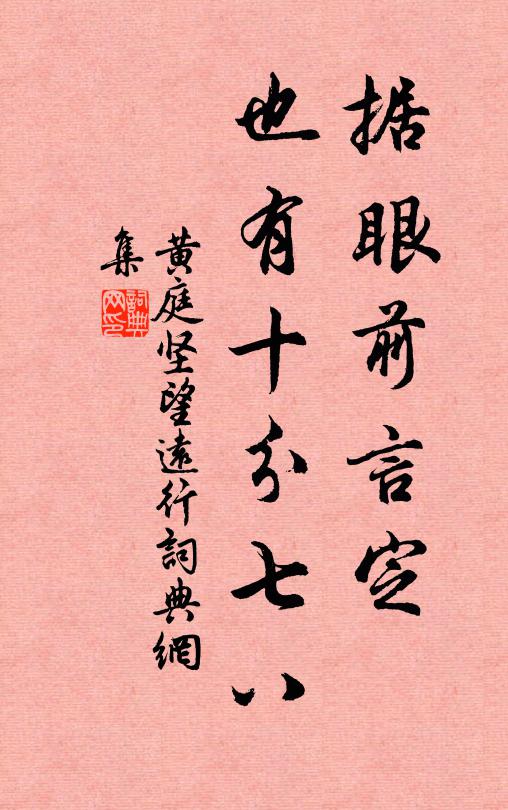 据眼前言定
也有十分七八
黄庭坚望遠行詞典網
集
詞典
网印